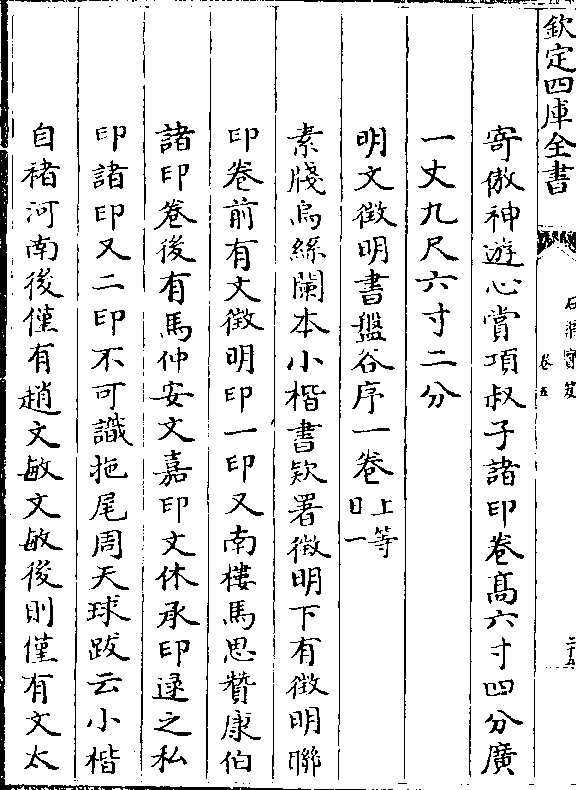 欽定四庫全書
石渠寶笈
卷五
寄傲神遊心賞項叔子諸印卷髙六寸四分廣
一丈九尺六寸二分
明文徵明書盤谷序一卷上等
日一
素牋烏絲闌本小楷書欵署徵明下有徵明聨
印卷前有文徵明印一印又南樓馬思贊康伯
諸印卷後有馬仲安文嘉印文休承印逯之私
印諸印又二印不可識拖尾周天球跋云小楷
自褚河南後僅有趙文敏文敏後則僅有文太